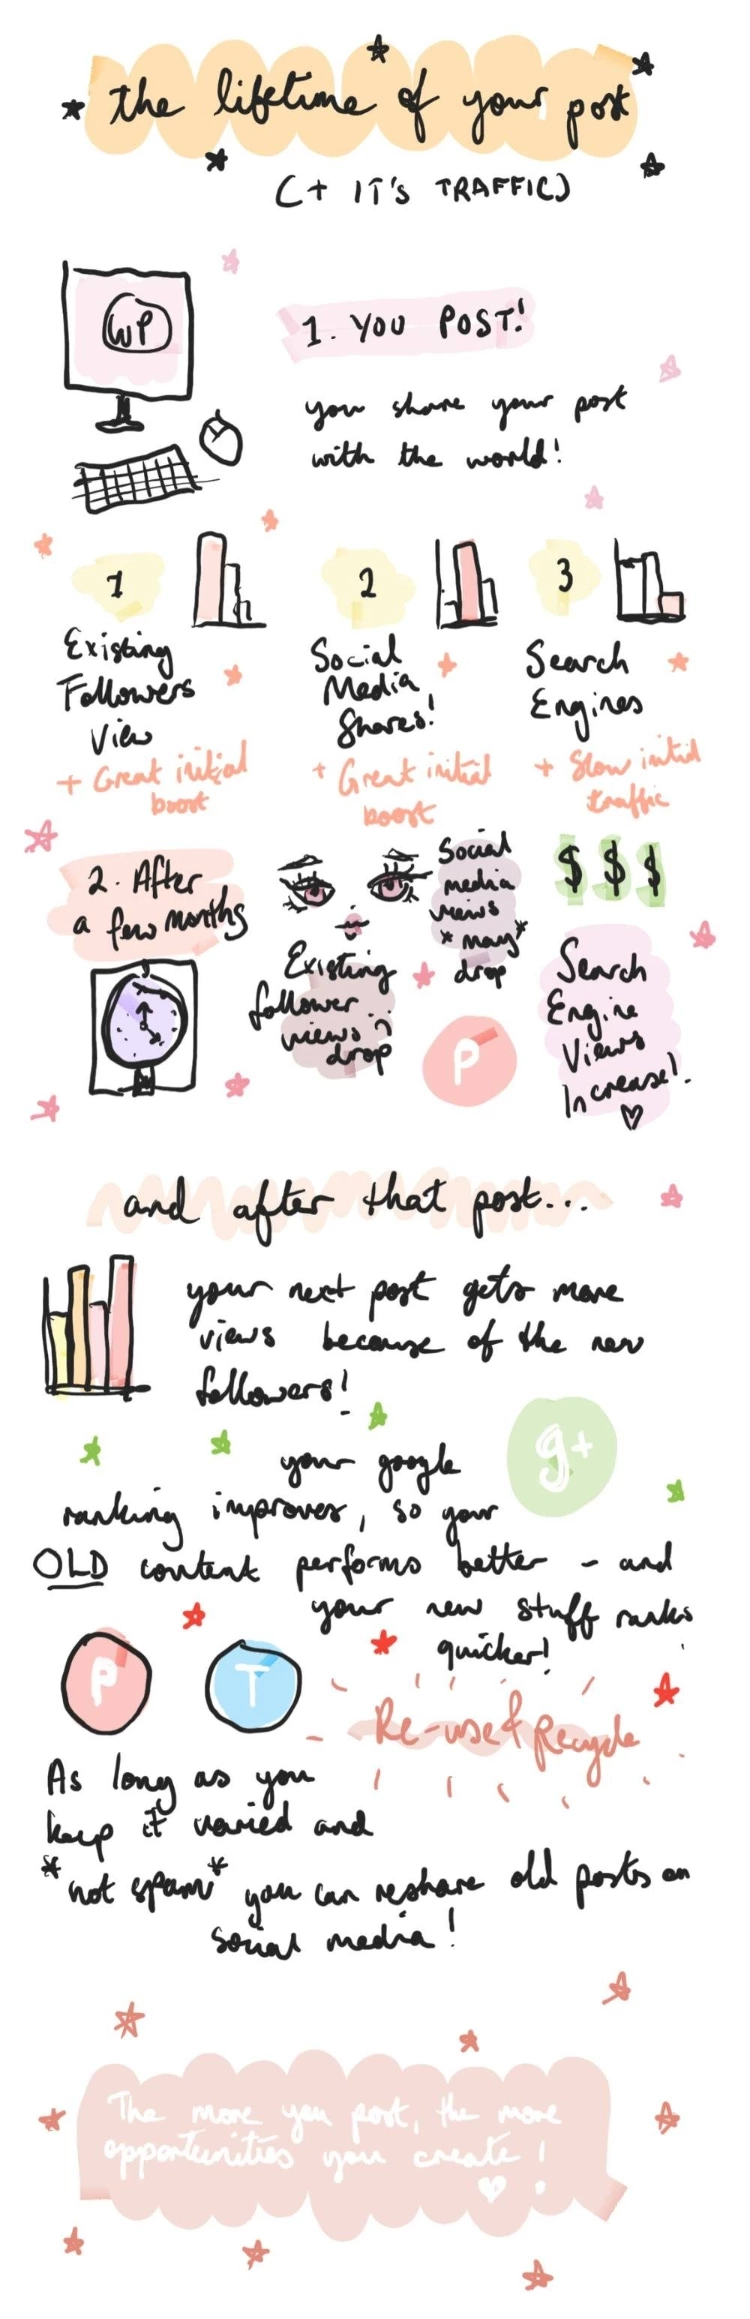 the lifetime of your post
(+ IT'S TRAFFIC)
WP
1. YOU POST!
you share your post
with the world!
1
Existing
Followers
View
+ Great initial
boost
2
Social
Media
Shares!
+ Great initial
boost
3
Search
Engines
+ Slow initial
traffic
2. After
a few months
Existing
follower
views
drop
Social
media
views
*may*
drop
P
$ $ $
Search
Engine
Views
Increase!
and after that post...
your next post gets more
views because of the new
followers!
g+
your google
ranking improves, so your
OLD content performs better - and
your new stuff ranks
quicker!
P
T
Re-use & Recycle
As long as you
keep it varied and
*not spam* you can reshare old posts on
social media!
The more you post, the more
opportunities you create!